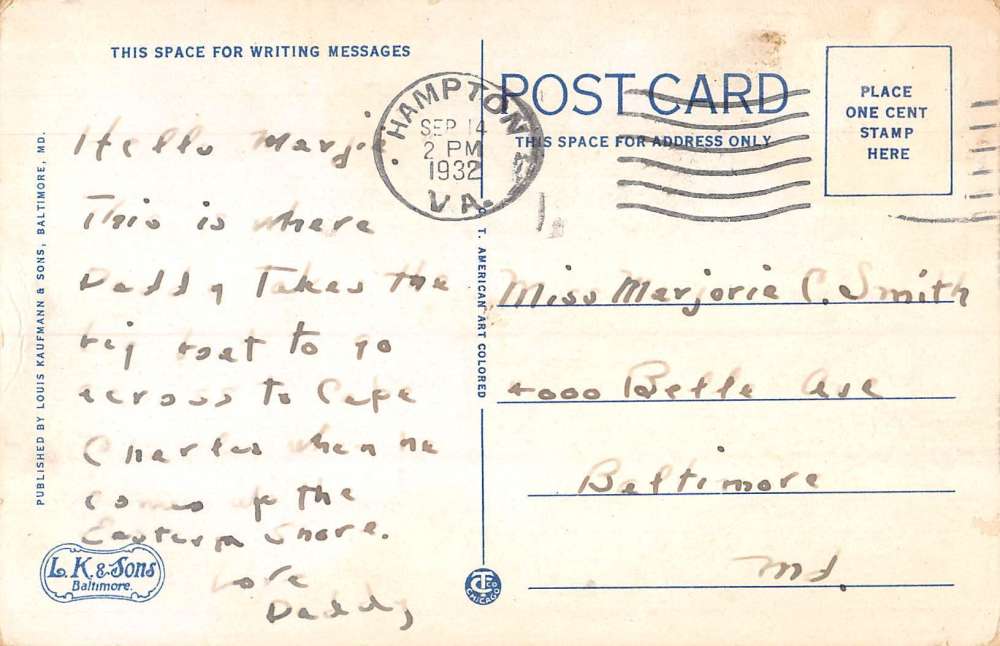 THIS SPACE FOR WRITING MESSAGES
Hello Marjie
This is where
Daddy takes the
big boat to go
across to Cape
Charles when he
comes up the
Eastern Shore.
Love
Daddy
PUBLISHED BY LOUIS KAUFMANN & SONS, BALTIMORE, MD.
L.K. & Sons
Baltimore.
HAMPTON
SEP 14
2 PM
1932
VA.
C. T. AMERICAN ART COLORED
CHICAGO
POST CARD
THIS SPACE FOR ADDRESS ONLY
PLACE
ONE CENT
STAMP
HERE
Miss Marjorie C. Smith
4000 Belle Ave
Baltimore
Md.